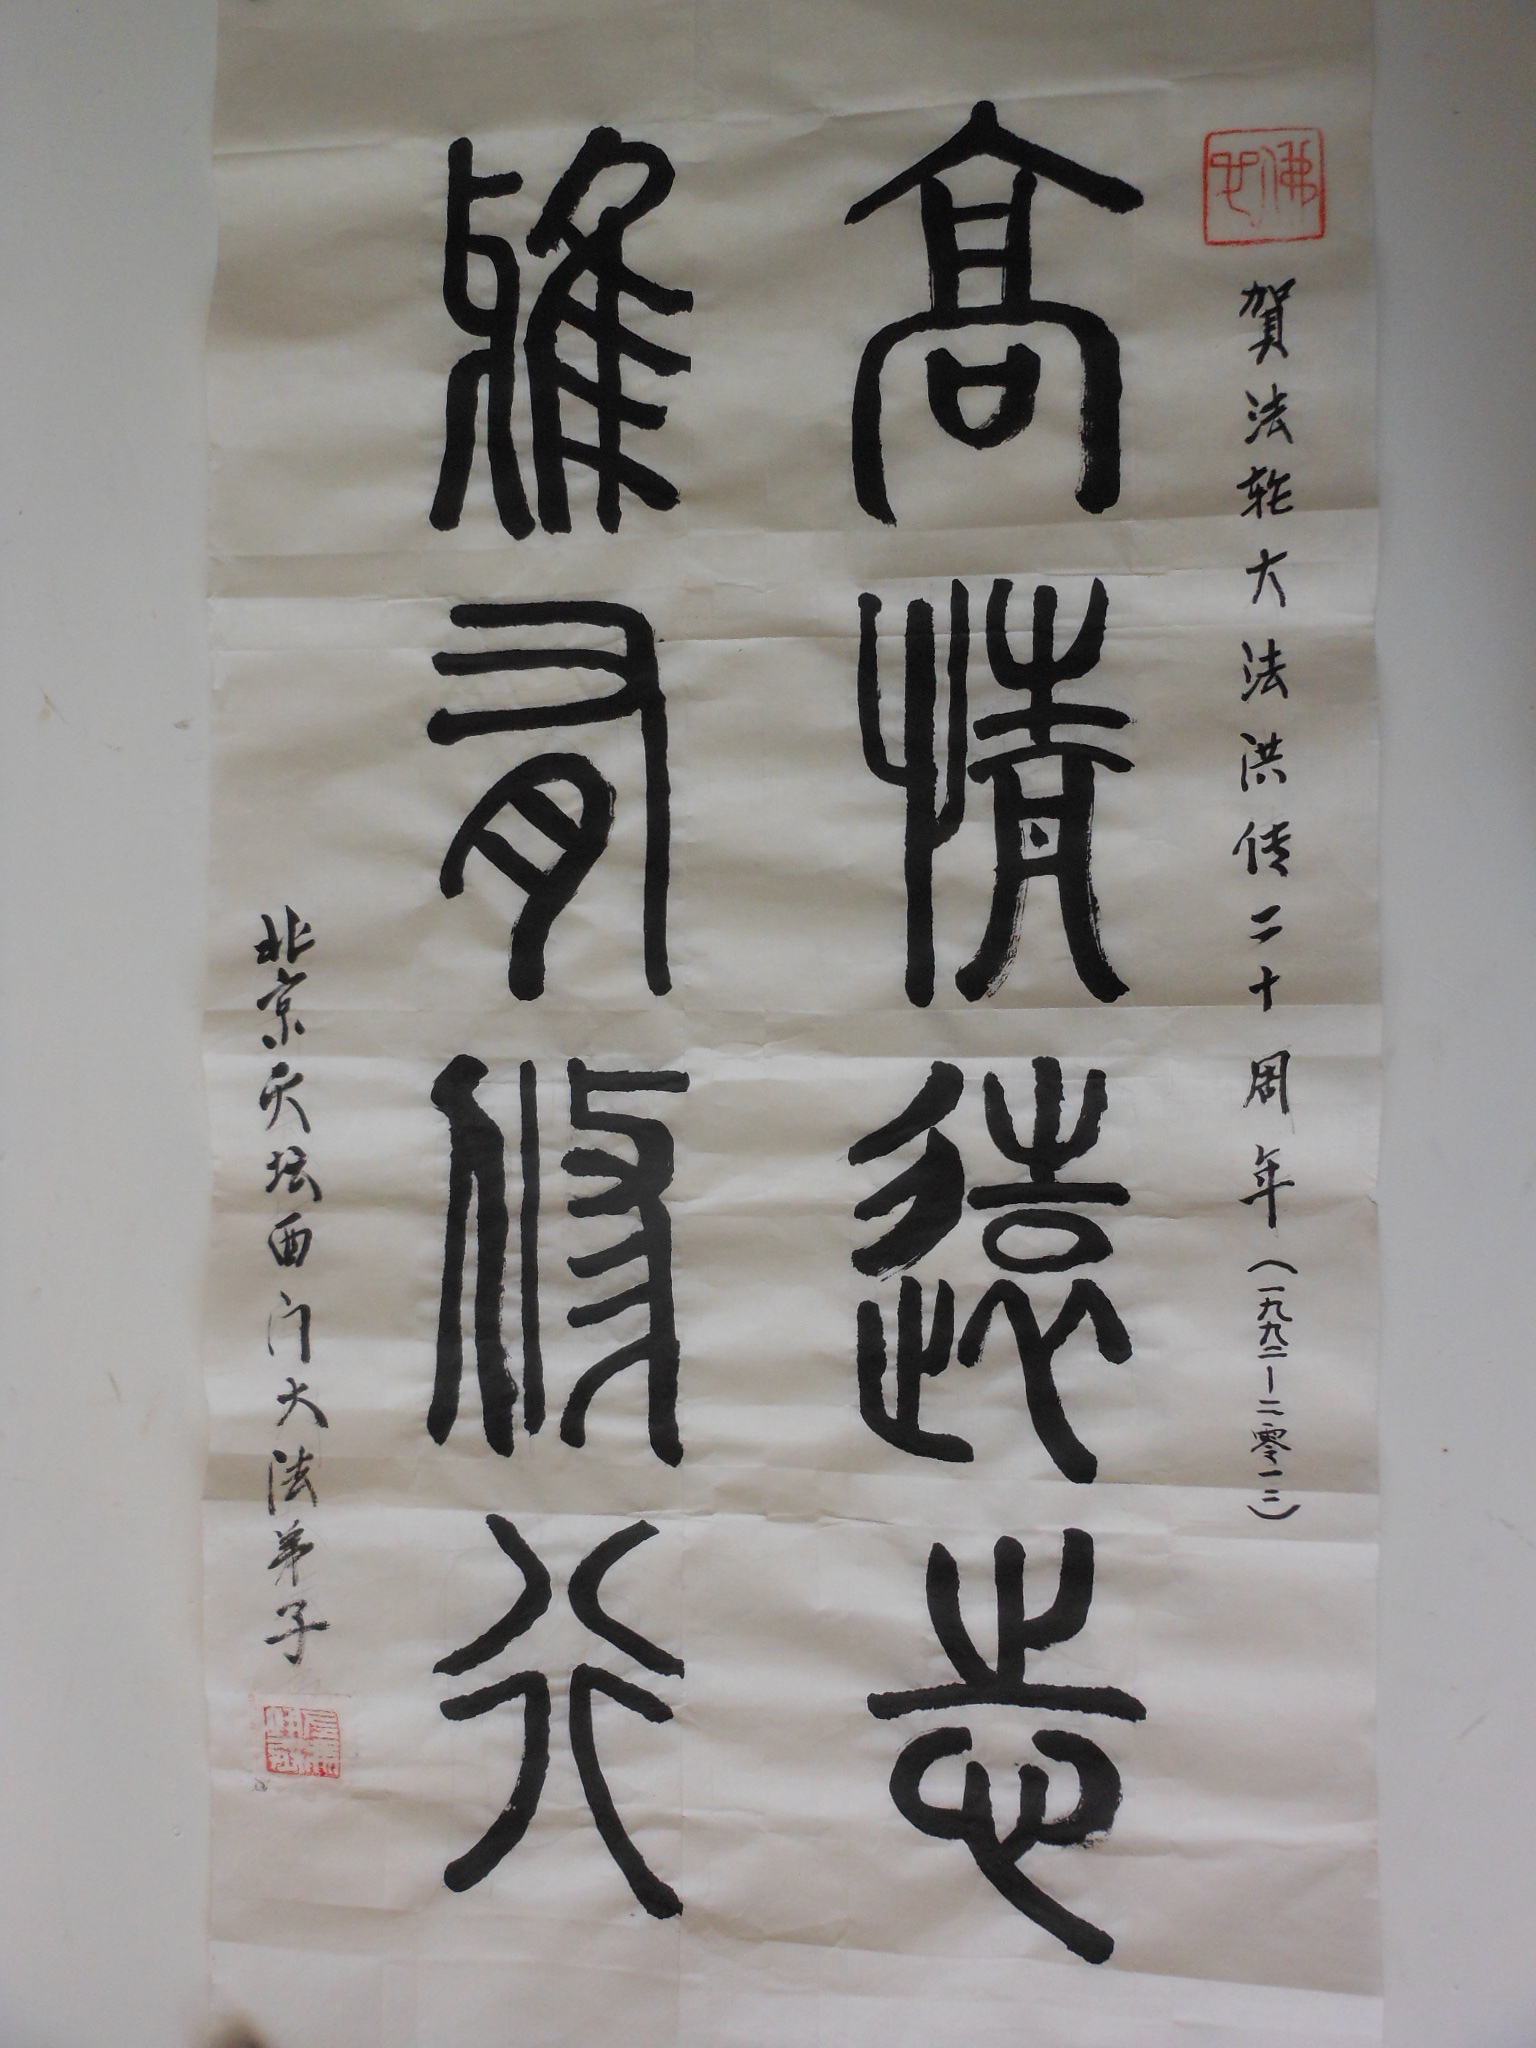 贺法轮大法洪传二十周年（一九九二—二零一二）
高情遠志
雅有修行
北京天坛西门大法弟子